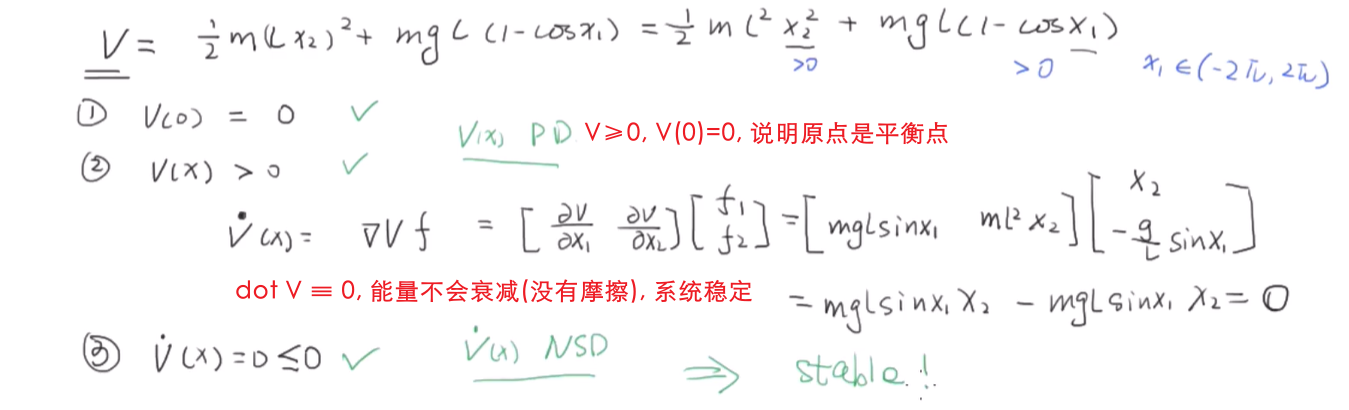 V = ½m(Lx₂)² + mgL(1-cosx₁) = ½ml²x₂² + mgL(1-cosx₁)
>0 >0 x₁∈(-2π, 2π)
① V(0) = 0 ✓
V(x) PD V≥0, V(0)=0, 说明原点是平衡点
② V(x) > 0 ✓
V̇(x) = ∇V f = [∂V/∂x₁ ∂V/∂x₂][f₁ f₂] = [mgLsinx₁ ml²x₂][x₂ -g/L sinx₁]
dot V ≡ 0, 能量不会衰减(没有摩擦), 系统稳定
= mgLsinx₁x₂ - mgLsinx₁x₂ = 0
③ V̇(x)=0≤0 ✓ V̇(x) NSD ⇒ stable!